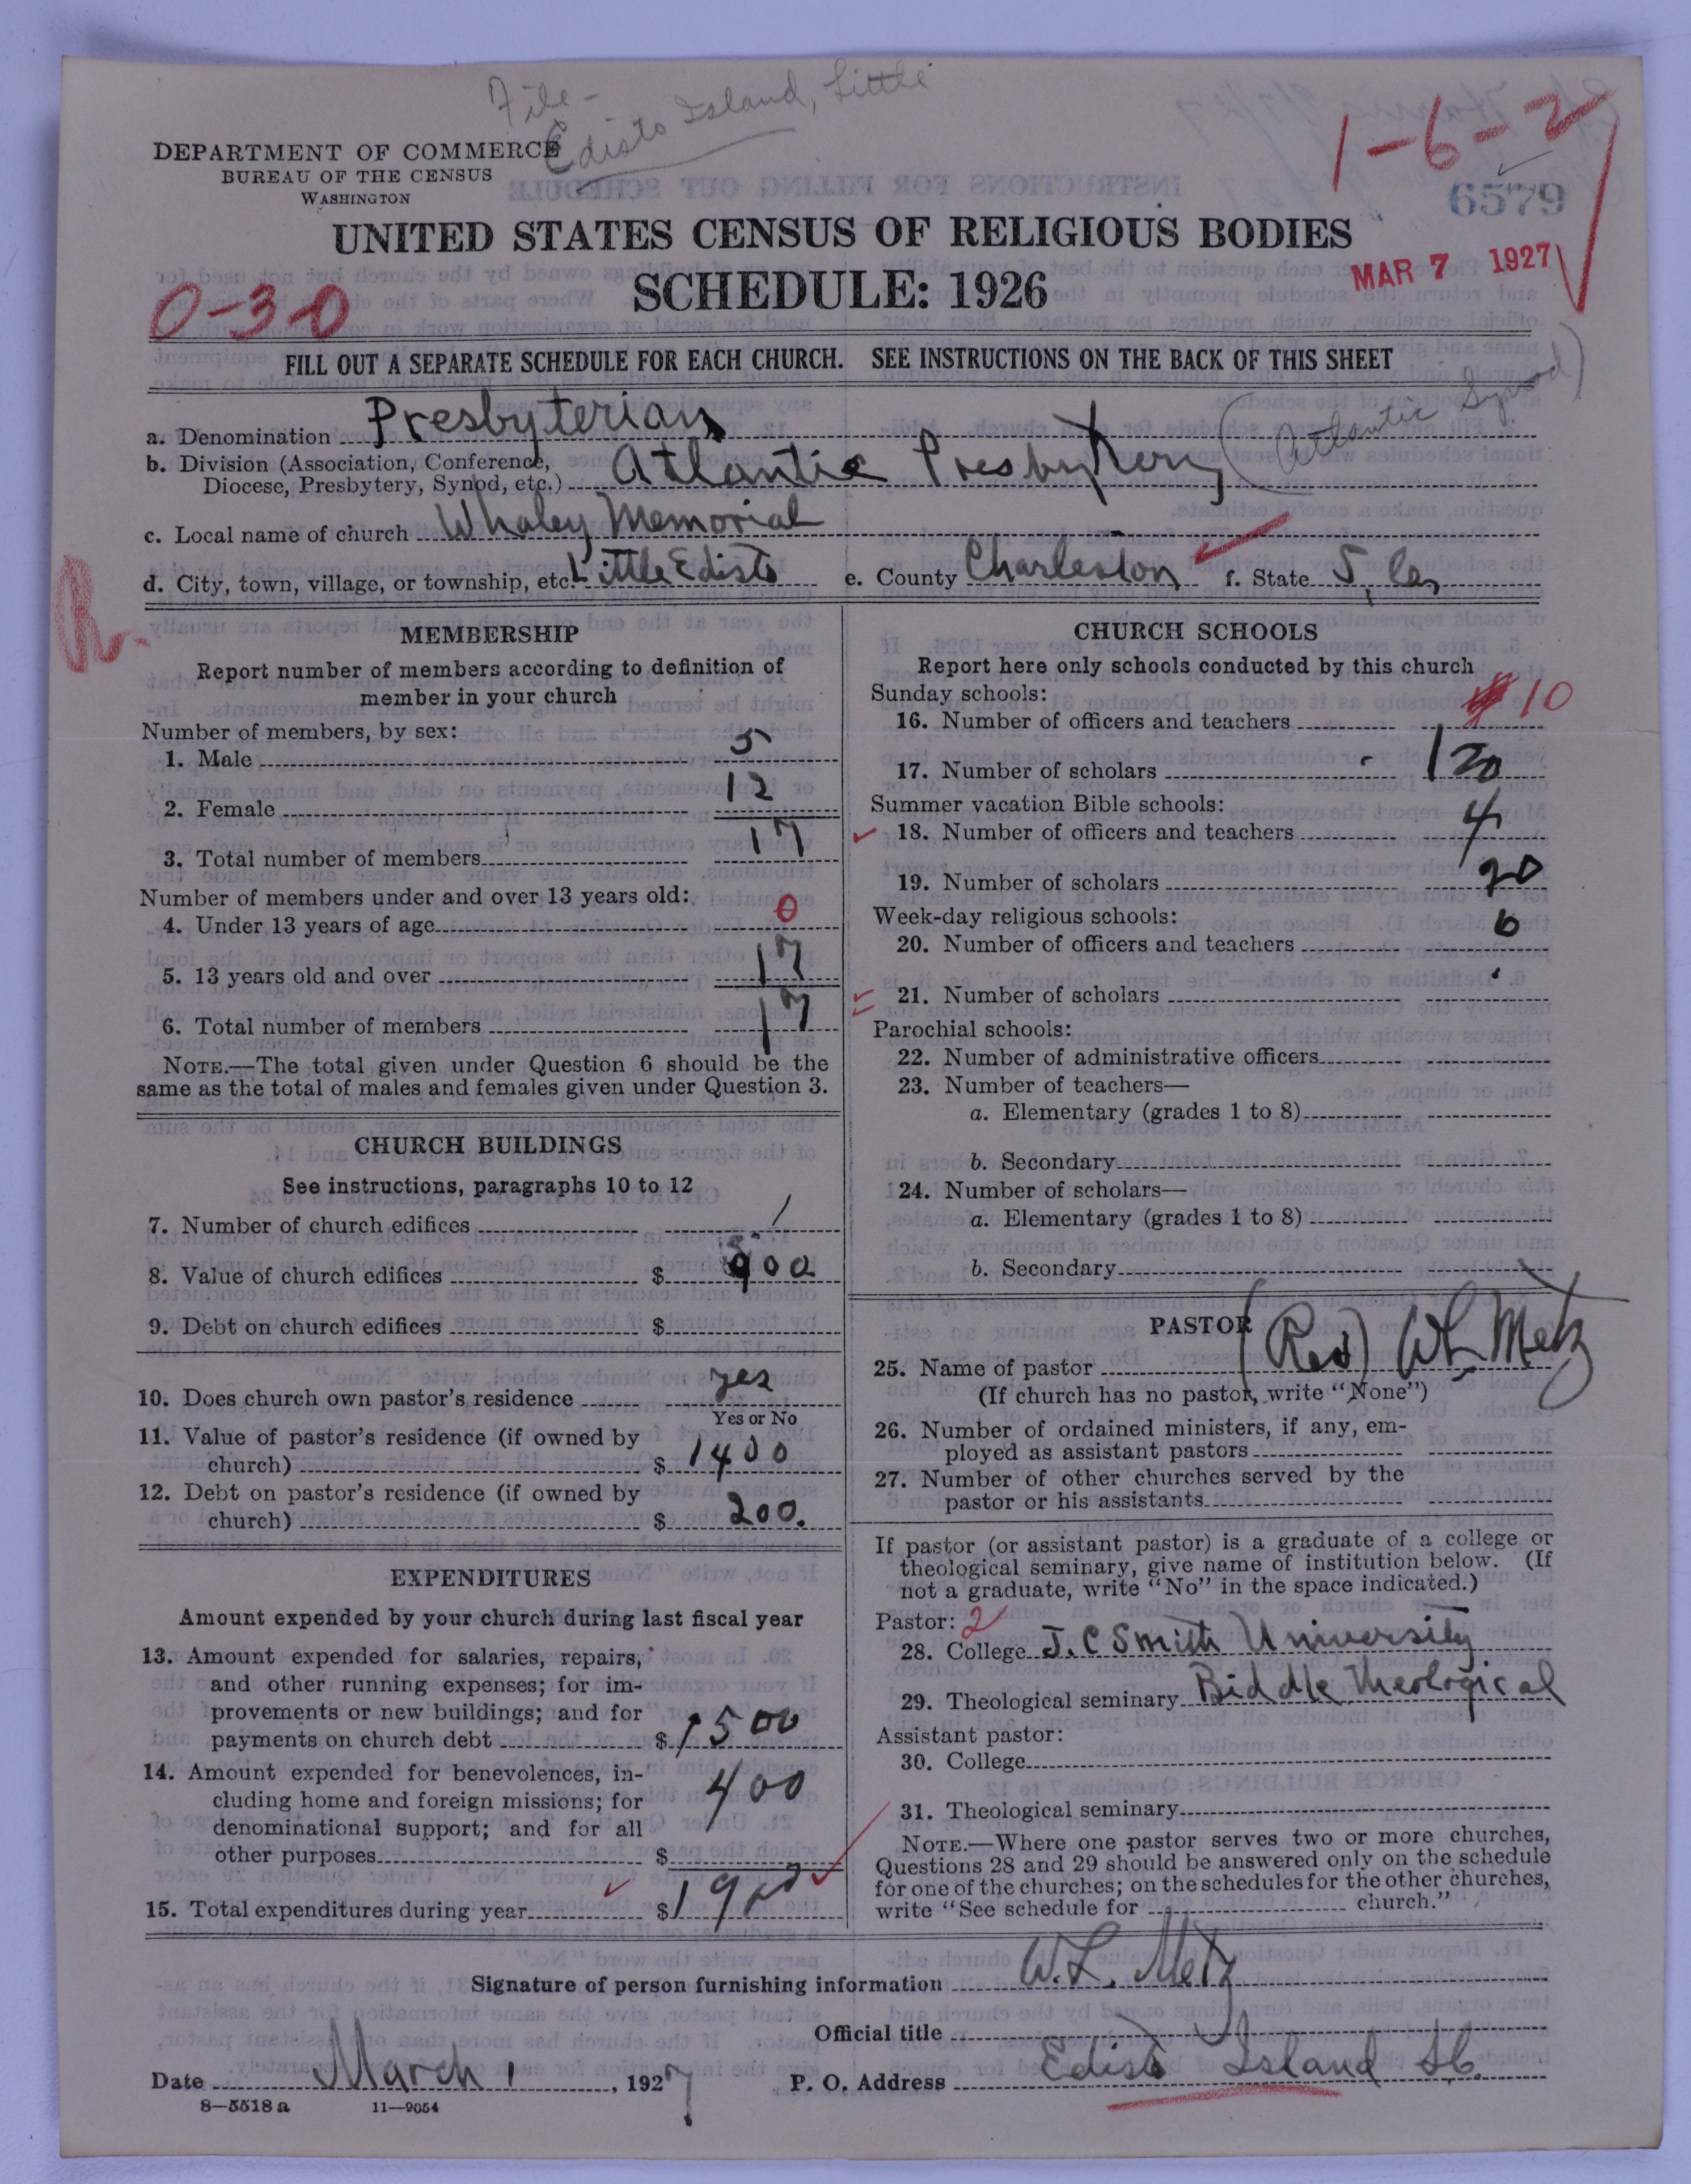 File -
Edisto Island, Little
DEPARTMENT OF COMMERCE
BUREAU OF THE CENSUS
WASHINGTON
1-6-2
6579
UNITED STATES CENSUS OF RELIGIOUS BODIES
SCHEDULE: 1926
MAR 7 1927
0-30
FILL OUT A SEPARATE SCHEDULE FOR EACH CHURCH. SEE INSTRUCTIONS ON THE BACK OF THIS SHEET
a. Denomination Presbyterian
b. Division (Association, Conference, Diocese, Presbytery, Synod, etc.) Atlantic Presbytery (Atlantic Synod)
c. Local name of church Whaley Memorial
d. City, town, village, or township, etc. Little Edisto e. County Charleston f. State S. Ca,
MEMBERSHIP
Report number of members according to definition of
member in your church
Number of members, by sex:
1. Male 5
2. Female 12
3. Total number of members 17
Number of members under and over 13 years old:
4. Under 13 years of age 0
5. 13 years old and over 17
6. Total number of members 17
NOTE.—The total given under Question 6 should be the
same as the total of males and females given under Question 3.
CHURCH BUILDINGS
See instructions, paragraphs 10 to 12
7. Number of church edifices 1
8. Value of church edifices $ 00
9. Debt on church edifices $
10. Does church own pastor's residence yes
Yes or No
11. Value of pastor's residence (if owned by
church) $ 1400
12. Debt on pastor's residence (if owned by
church) $ 200.
EXPENDITURES
Amount expended by your church during last fiscal year
13. Amount expended for salaries, repairs,
and other running expenses; for im-
provements or new buildings; and for
payments on church debt $ 1500
14. Amount expended for benevolences, in-
cluding home and foreign missions; for
denominational support; and for all
other purposes $ 400
15. Total expenditures during year $ 1900
CHURCH SCHOOLS
Report here only schools conducted by this church
Sunday schools:
16. Number of officers and teachers 10
17. Number of scholars 120
Summer vacation Bible schools:
18. Number of officers and teachers 4
19. Number of scholars 20
Week-day religious schools:
20. Number of officers and teachers
21. Number of scholars
Parochial schools:
22. Number of administrative officers
23. Number of teachers—
a. Elementary (grades 1 to 8)
b. Secondary
24. Number of scholars—
a. Elementary (grades 1 to 8)
b. Secondary
PASTOR
25. Name of pastor (Rev) W L. Metz
(If church has no pastor, write "None")
26. Number of ordained ministers, if any, em-
ployed as assistant pastors
27. Number of other churches served by the
pastor or his assistants
If pastor (or assistant pastor) is a graduate of a college or
theological seminary, give name of institution below. (If
not a graduate, write "No" in the space indicated.)
Pastor: 2
28. College J. C Smith University
29. Theological seminary Biddle Theological
Assistant pastor:
30. College
31. Theological seminary
NOTE.—Where one pastor serves two or more churches,
Questions 28 and 29 should be answered only on the schedule
for one of the churches; on the schedules for the other churches,
write "See schedule for church."
Signature of person furnishing information W. L. Metz
Official title
Date March 1, 1927 P. O. Address Edisto Island SC.
8—5518 a 11—9054